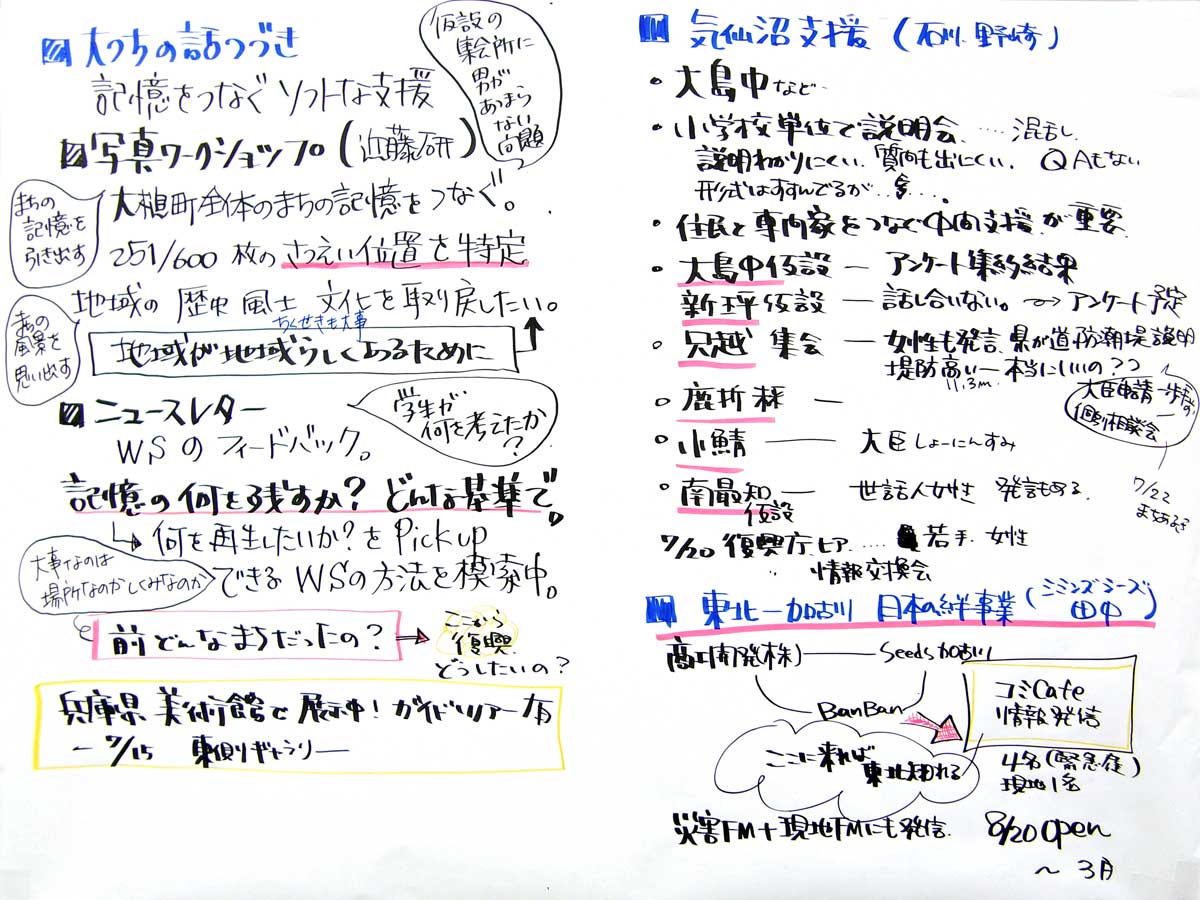 大つちの話つづき
記憶をつなぐソフトな支援
仮設の
集会所に
男が
あつまら
ない
問題
写真ワークショップ(近藤研)
まちの
記憶を
引き出す
大槌町全体のまちの記憶をつなぐ。
251/600 枚の さつえい位置を特定
地域の 歴史 風土 文化を取り戻したい。
ちくせきも大事
まちの
風景を
思い出す
地域が地域らしくあるために
ニュースレター
WSのフィードバック。
学生が
何を考えてたか
?
記憶の何を残すか? どんな基準で。
何を再生したいか?をPickup
できるWSの方法を模索中。
大事なのは
場所なのかしくみなのか
前どんなまちだったの?
ここから
復興
どうしたいの?
兵庫県美術館で展示中! ガイドツアー有
〜7/15 東側ギャラリー
気仙沼支援(石川、野崎)
・大島中など…
・小学校単位で説明会……混乱し
説明わかりにくい、質問も出にくい、QAもない
形式はすすんでるが…
・住民と専門家をつなぐ中間支援が重要
・大島中仮設 ー アンケート集約結果
新王平仮設 ー 話し合いない。 アンケート予定
・只越 集会 ー 女性も発言、県が道、防潮堤説明
堤防高い ー 本当にいいの??
11.3m
大臣申請一歩手前
個別相談会
・鹿折 ー
・小鯖 ー 大臣しょーにんすみ
・南最知 ー 世話人女性 発言もある。
仮設
7/22
まちあるき
7/20 復興庁ヒア…… 若手、女性
情報交換会
東北ー加古川 日本の絆事業(シミンズシーズ 田中)
高工開発(株) ー Seeds加古川
BanBan
コミCafe
情報発信
ここに来れば
東北知れる
4名(緊急雇)
現地1名
災害FM+現地FMにも発信
8/20 open
〜3月